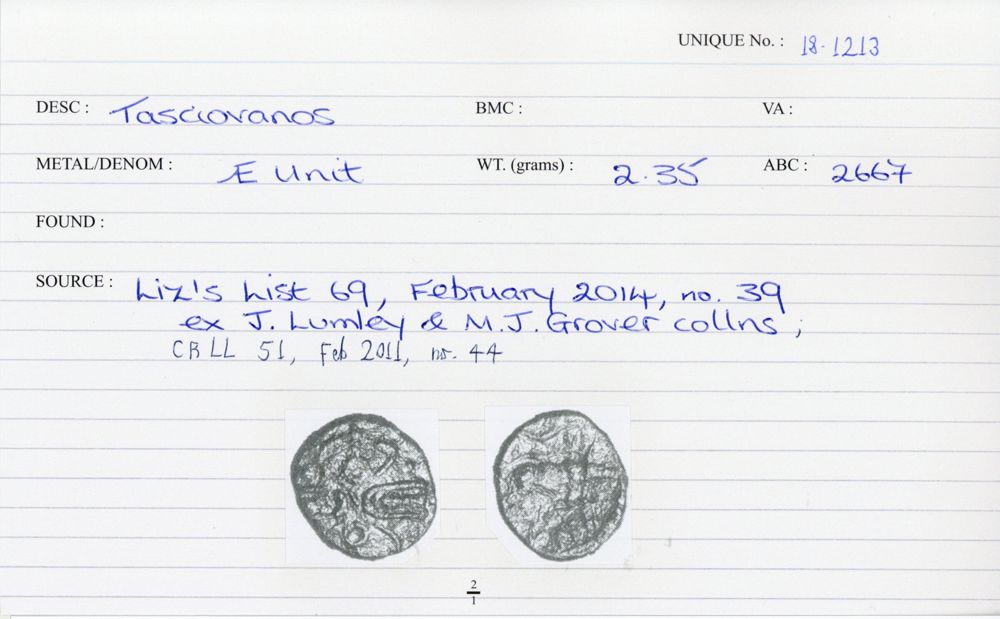 UNIQUE No. : 18.1213
DESC : Tasciovanos BMC : VA :
METAL/DENOM : Æ Unit WT. (grams) : 2.35 ABC : 2667
FOUND :
SOURCE : Liz's List 69, February 2014, no. 39
ex J. Lumley & M.J. Grover collns ;
CR LL 51, Feb 2011, no. 44
2
1